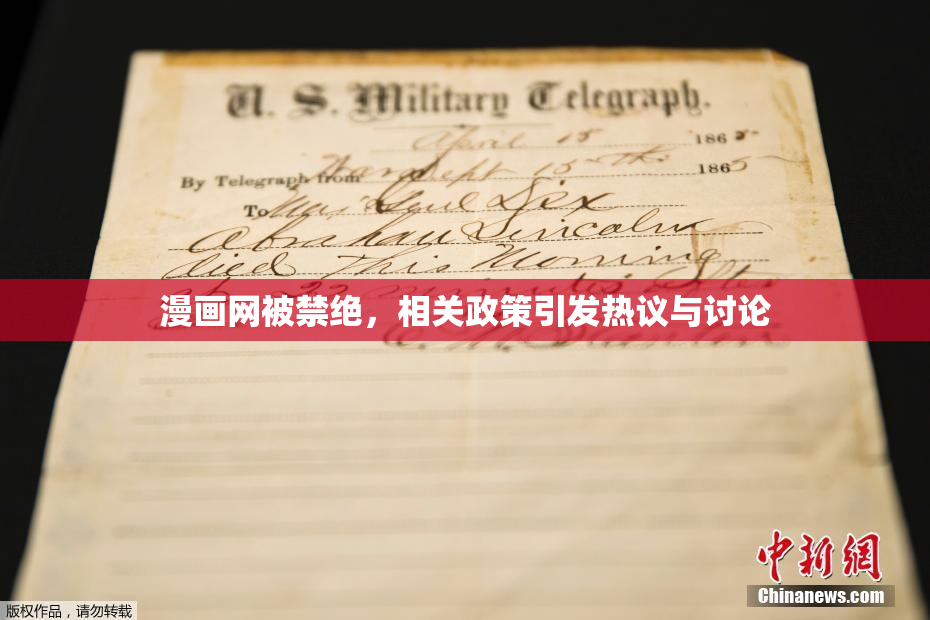 U. S. Military Telegraph.
April 15 1865
By Telegraph from War Dept 15th 1865
To Maj Genl Dix
Abraham Lincoln
died This Morning
at 22 minutes after
漫画网被禁绝，相关政策引发热议与讨论
中新网
Chinanews.com
版权作品，请勿转载